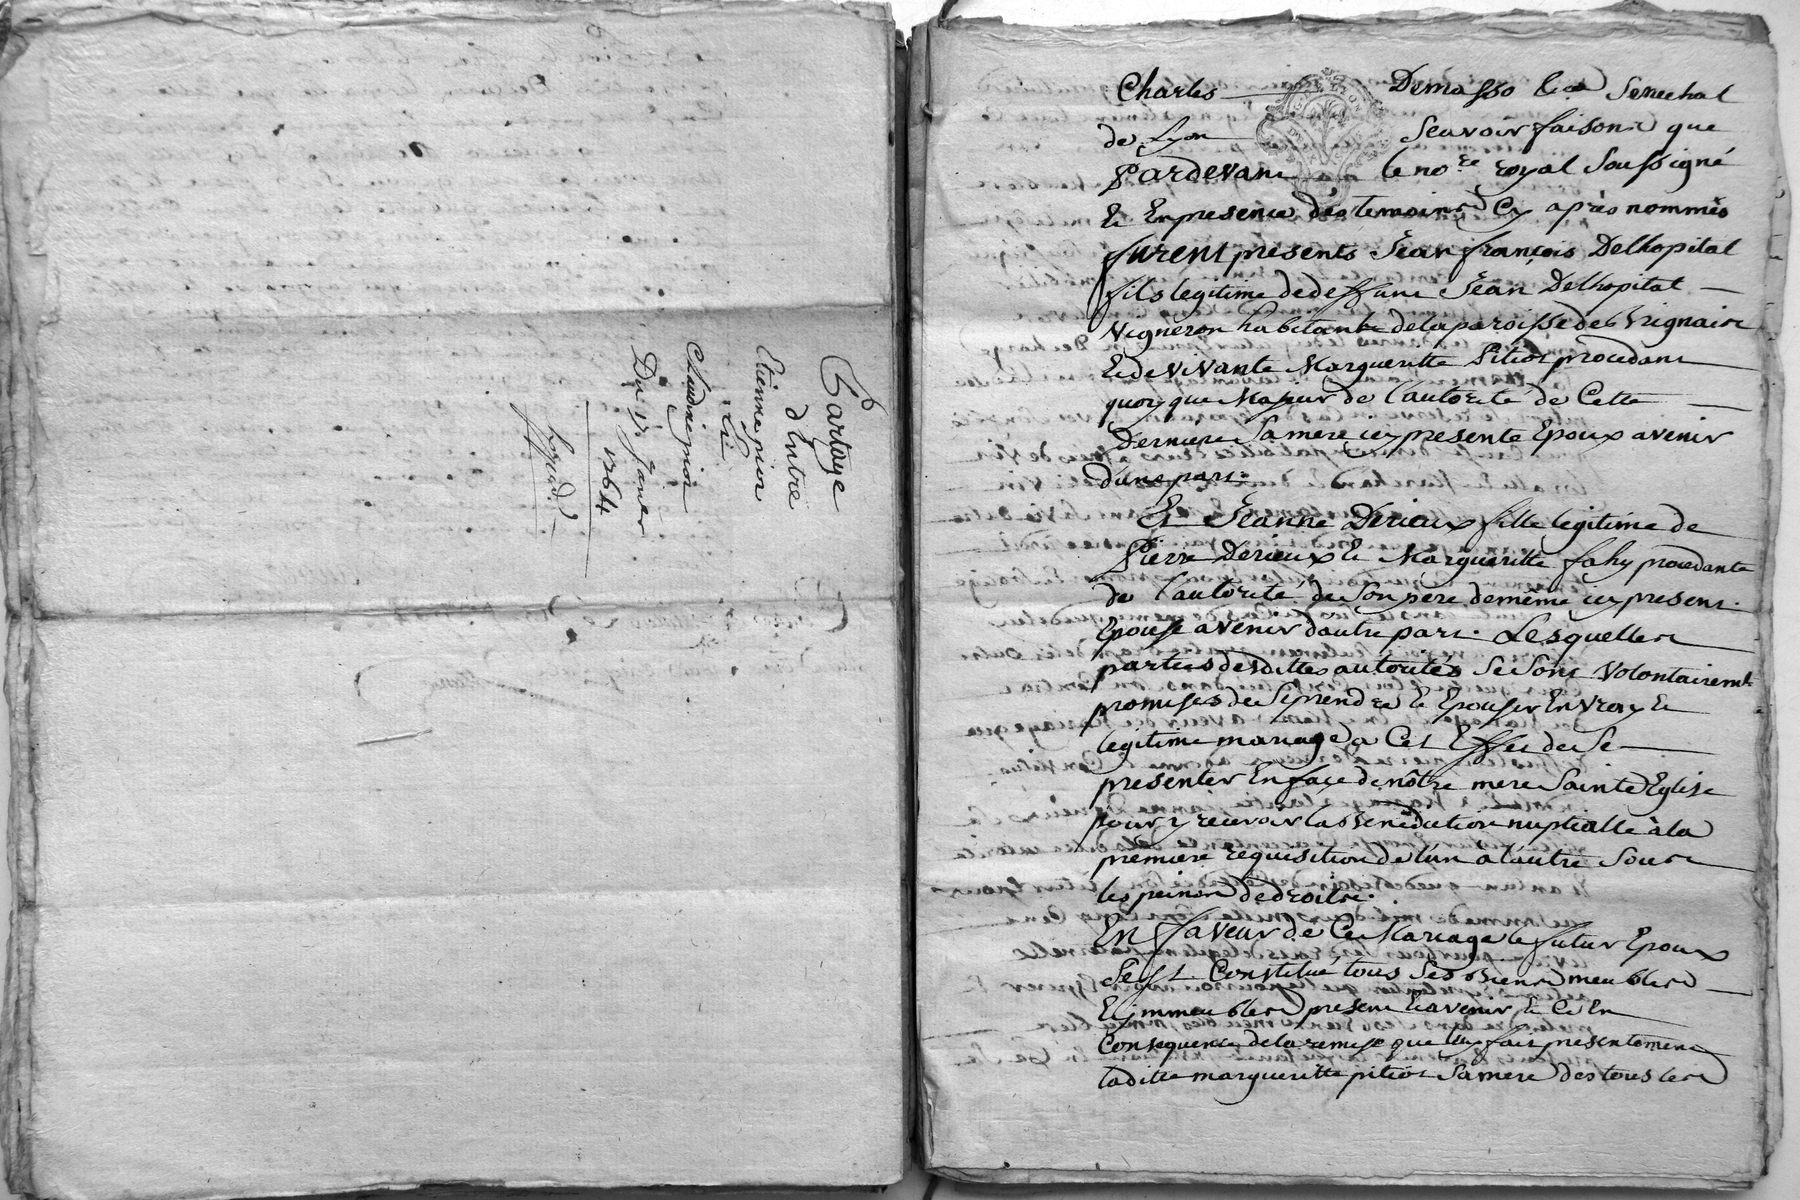 Partage
d'Entre
Etienne prior
&
Claudine prior
Du 17 Janvier
1764
Charles Demasso &ca Senechal
de Lyon Scavoir faisons que
Pardevant le nore royal Soussigné
Et En presence des temoins Cy après nommés
furent presents Jean françois Delhopital
fils legitime de deffunt Jean Delhopital
Vigneron habitant de la paroisse de Brignais
Et de vivante Margueritte Pitiot procedant
quoy que Majeur de l'autorité de Cette
Derniere Sa mere icy presente Epoux avenir
d'une part.
Et Jeanne Derieux fille legitime de
Pierre Derieux Et Margueritte fahy procedante
de l'autorité de Son pere de même icy present
Epouse avenir d'autre part. Lesquelles
parties desdittes autorités Se Sont Volontairemt
promises de Se prendre Et Epouser En Vray Et
legitime mariage a Cet Effet de Se
presenter En façe de nôtre mere Sainte Eglise
pour y recevoir la Benediction nuptialle à la
premiere requisition de l'un à l'autre Sous
les peines de droits.
En faveur de Ce Mariage le futur Epoux
S'est Constitué tous Ses Biens meubles
Et immeubles present Et avenir Et Ce En
Consequence de la remise que luy fait presentement
laditte margueritte pitiot Sa mere des tous les